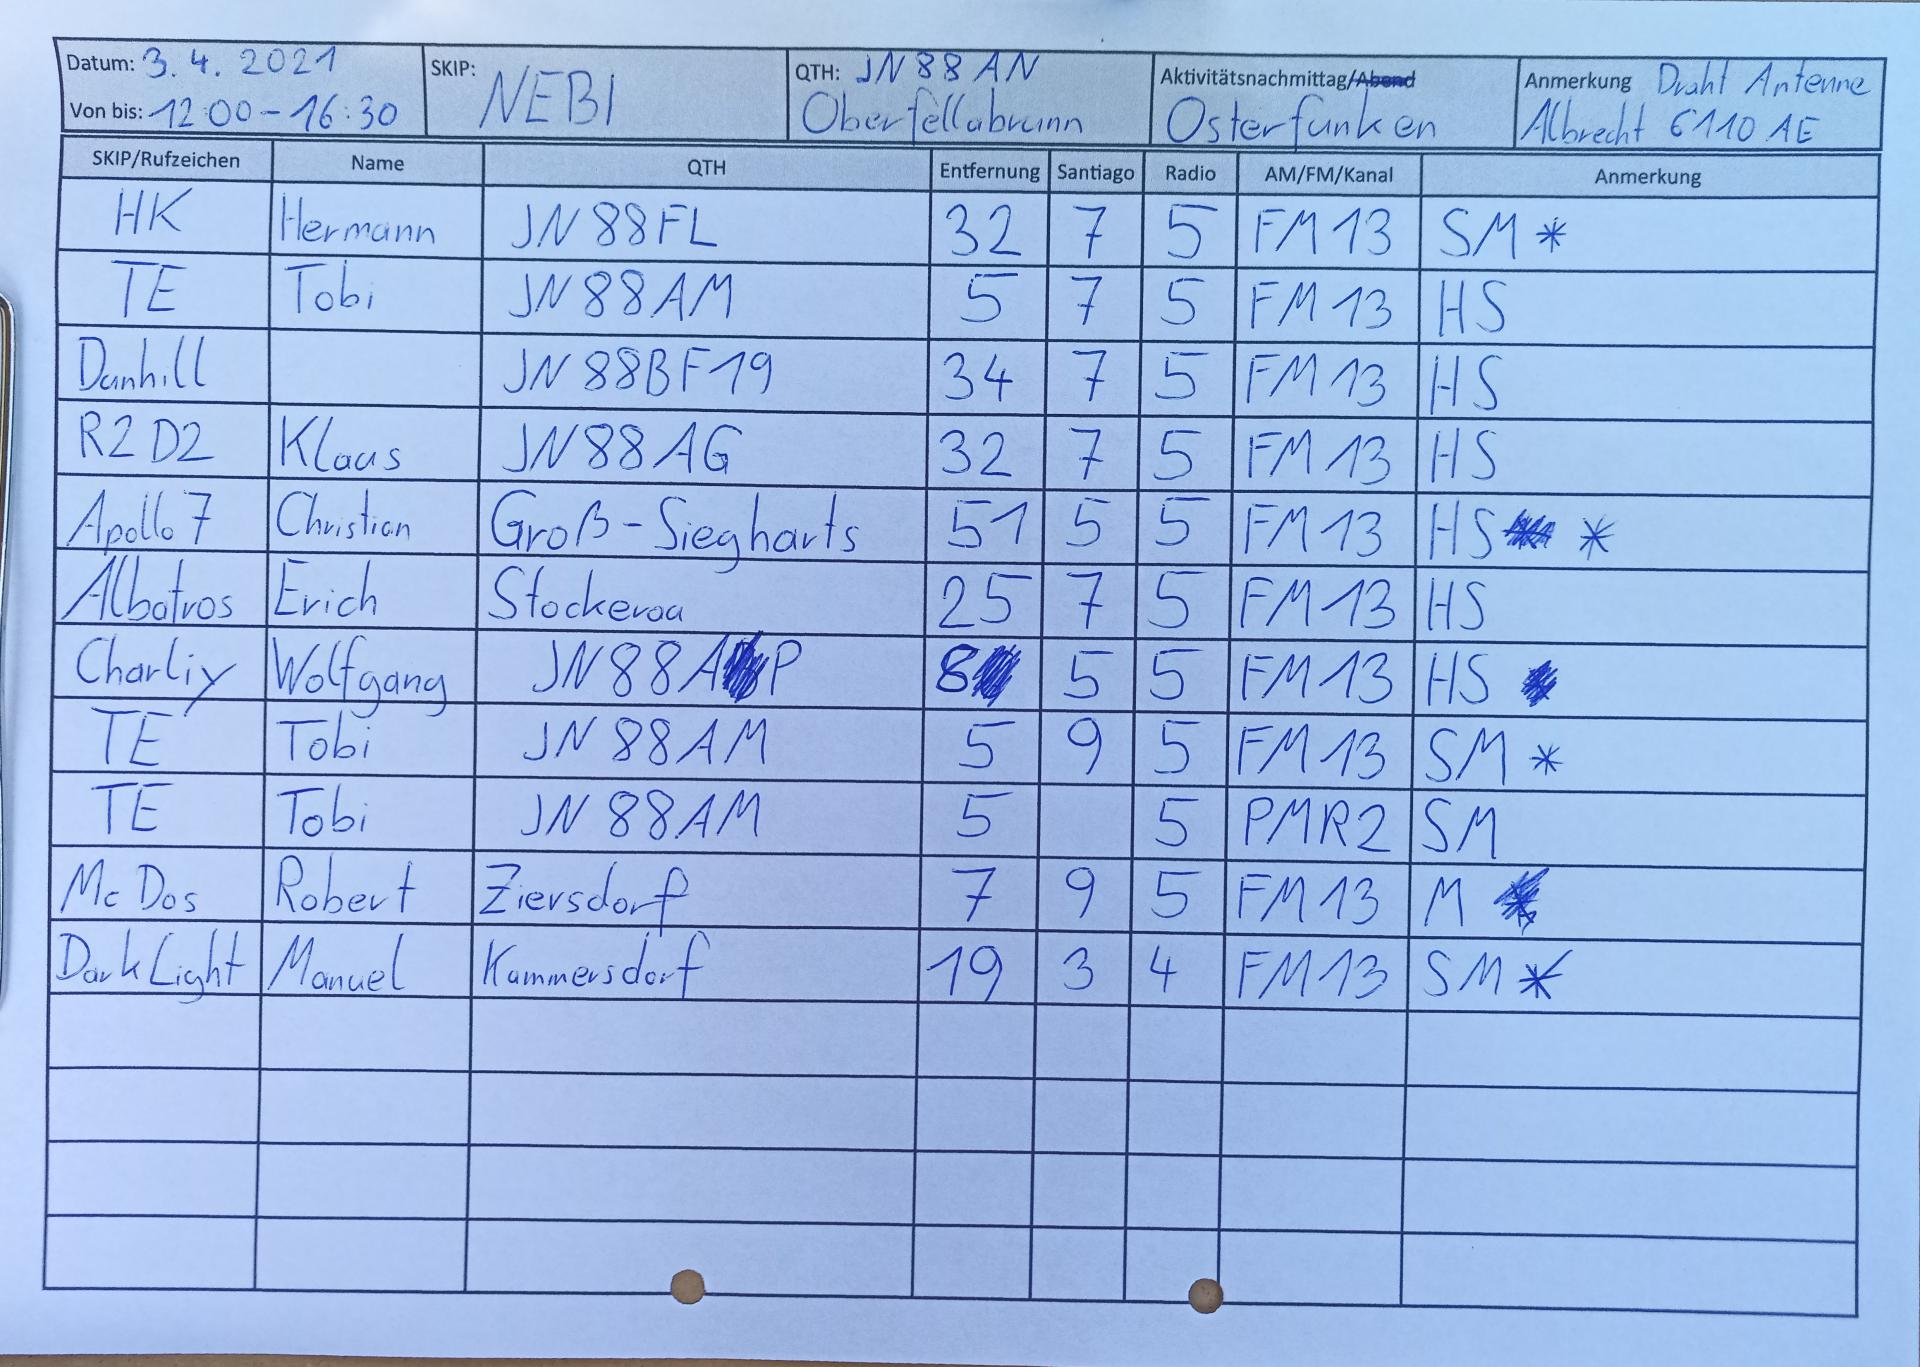 Datum: 3. 4. 2021 SKIP: NEBI QTH: JN88AN Aktivitätsnachmittag/Abend Anmerkung Draht Antenne
Von bis: 12:00-16:30 Oberfellabrunn Osterfunken Albrecht 6110 AE
SKIP/Rufzeichen Name QTH Entfernung Santiago Radio AM/FM/Kanal Anmerkung
HK Hermann JN88FL 32 7 5 FM 13 SM *
TE Tobi JN88AM 5 7 5 FM 13 HS
Dunhill JN88BF19 34 7 5 FM 13 HS
R2D2 Klaus JN88AG 32 7 5 FM 13 HS
Apollo 7 Christian Groß-Siegharts 51 5 5 FM 13 HS *
Albatros Erich Stockerau 25 7 5 FM 13 HS
Charliy Wolfgang JN88A P 8 5 5 FM 13 HS
TE Tobi JN88AM 5 9 5 FM 13 SM *
TE Tobi JN88AM 5 5 PMR2 SM
Mc Dos Robert Ziersdorf 7 9 5 FM 13 M
Dark Light Manuel Kammersdorf 19 3 4 FM 13 SM *